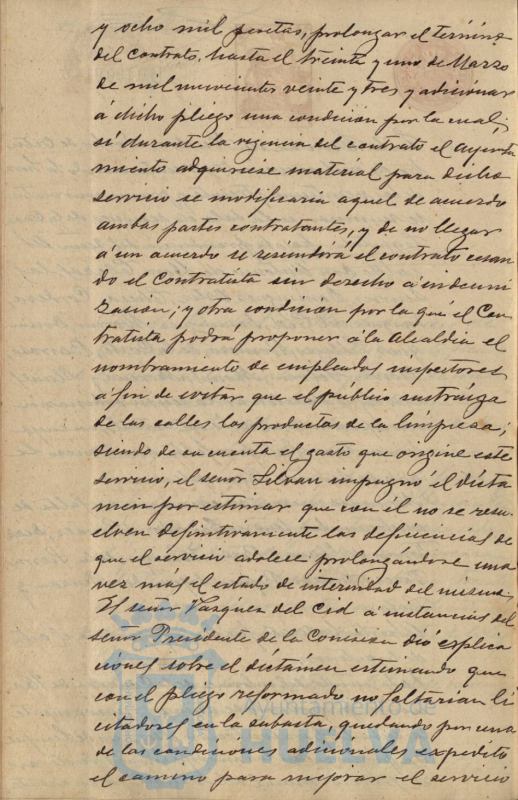 y ocho mil pesetas, prolongar el término
del contrato, hasta el treinta y uno de Marzo
de mil novecientos veinte y tres y adicionar
á dicho pliego una condición por la cual,
si durante la vigencia del contrato el Ayunta
miento adquiriese material para dicho
servicio se modificaria aquel de acuerdo
ambas partes contratantes, y de no llegar
á un acuerdo se rescindirá el contrato cesan
do el Contratista sin derecho á indemni
zación; y otra condicion por la que el Con
tratista podrá proponer á la Alcaldia el
nombramiento de empleados inspectores
á fin de evitar que el público sustraiga
de las calles los productos de la limpieza;
siendo de su cuenta el gasto que origine este
servicio, el señor Silvan impugnó el dicta
men por estimar que con él no se resu
elven definitivamente las deficiencias de
que el servicio adolece prolongándose una
vez más el estado de interinidad del mismo.
El señor Vazquez del Cid á instancias del
señor Presidente de la Comision dió explica
ciones sobre el dictámen estimando que
con el pliego reformado no faltarian li
citadores en la subasta, quedando por una
de las condiciones adicionales expedito
el camino para mejorar el servicio
Ayuntamiento de
HUELVA